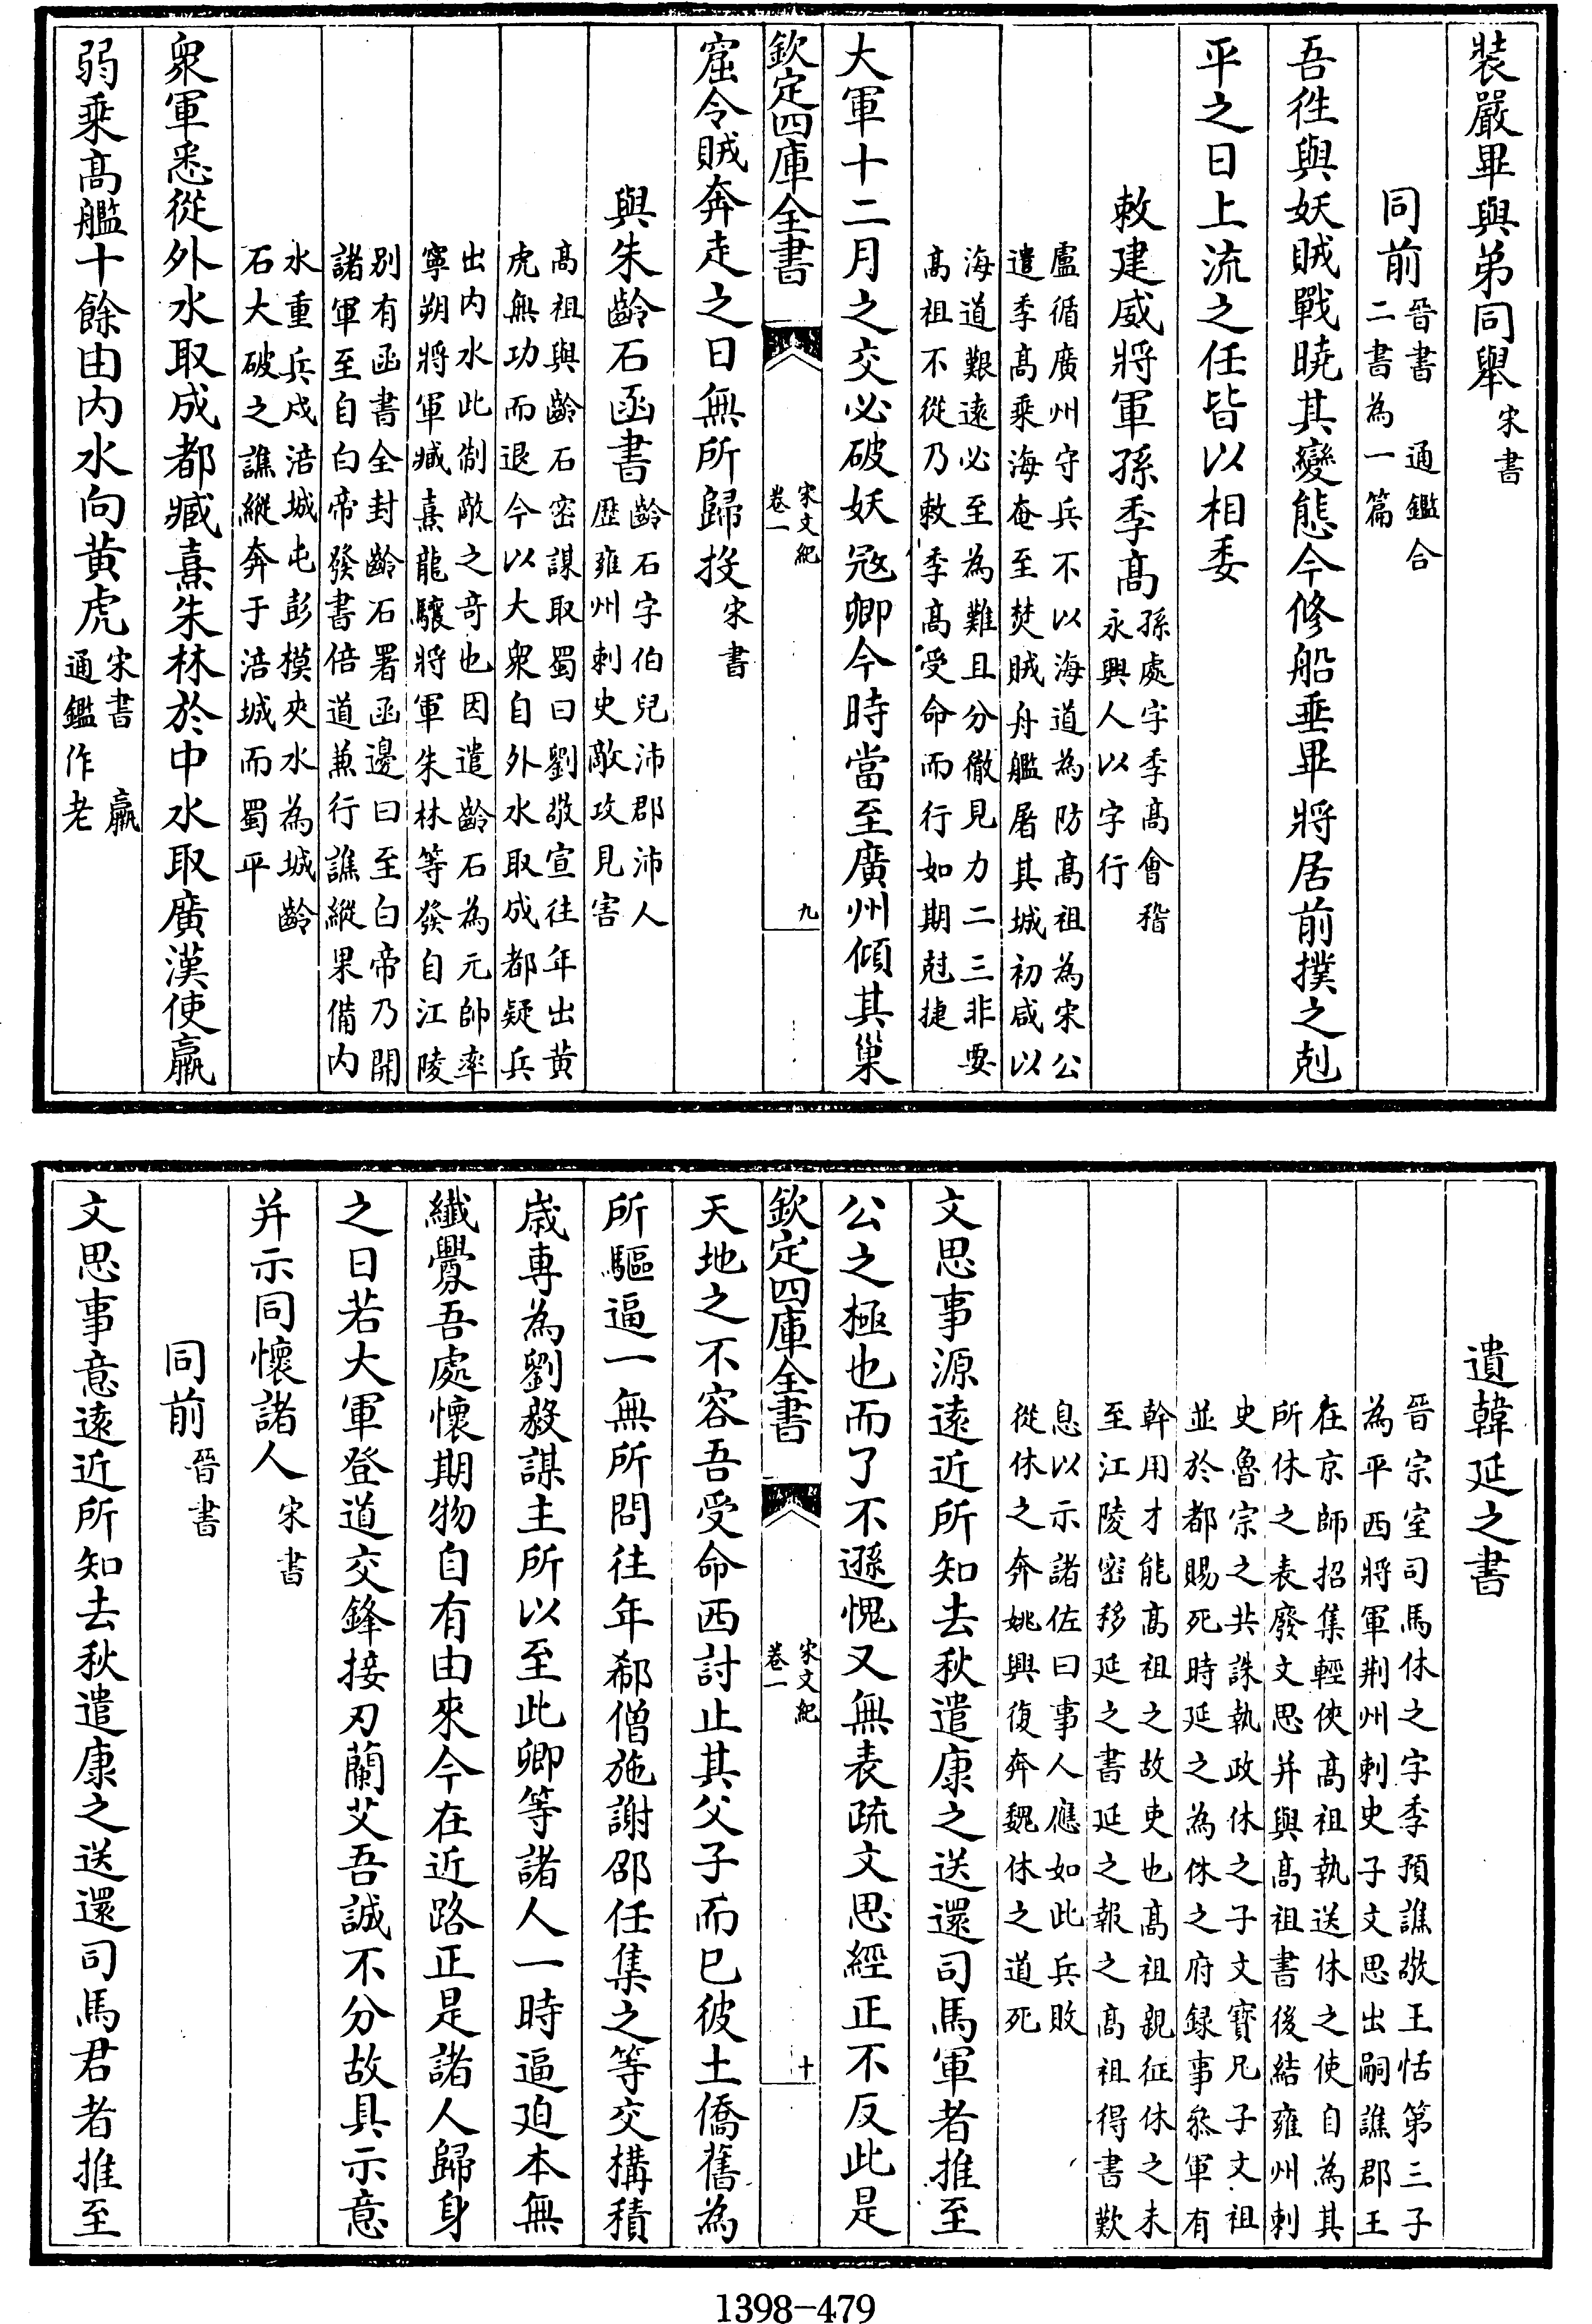 裝嚴畢與弟同舉宋書
同前晉書　通鑑合
二書為一篇
吾徃與妖賊戰曉其變態今修船垂畢將居前撲之剋
平之日上流之任皆以相委
敕建威將軍孫季髙孫處字季髙會稽
永興人以字行
盧循廣州守兵不以海道為防髙祖為宋公
遣季髙乗海奄至焚賊舟艦屠其城初咸以
海道艱遠必至為難且分徹見力二三非要
髙祖不從乃敕季髙受命而行如期尅捷
大軍十二月之交必破妖冦卿今時當至廣州傾其巢
欽定四庫全書
宋文紀
卷一
九
窟令賊奔走之日無所歸投宋書
與朱齡石函書齡石字伯兒沛郡沛人
歴雍州刺史敵攻見害
髙祖與齡石密謀取蜀曰劉敬宣往年出黄
虎無功而退今以大衆自外水取成都疑兵
出内水此制敵之竒也因遣齡石為元帥率
寧朔將軍臧熹龍驤將軍朱林等發自江陵
别有函書全封齡石署函邊曰至白帝乃開
諸軍至自白帝發書倍道兼行譙縱果備内
水重兵戍涪城屯彭模夾水為城齡
石大破之譙縱奔于涪城而蜀平
衆軍悉從外水取成都臧熹朱林於中水取廣漢使羸
弱乗髙艦十餘由内水向黄虎宋書　羸
通鑑作老
遺韓延之書
晉宗室司馬休之字季預譙敬王恬第三子
為平西將軍荆州刺史子文思出嗣譙郡王
在京師招集輕俠髙祖執送休之使自為其
所休之表廢文思并與髙祖書後結雍州刺
史魯宗之共誅執政休之子文寳兄子文祖
並於都賜死時延之為休之府録事叅軍有
幹用才能髙祖之故吏也髙祖親征休之未
至江陵密移延之書延之報之髙祖得書歎
息以示諸佐曰事人應如此兵敗
從休之奔姚興復奔魏休之道死
文思事源遠近所知去秋遣康之送還司馬軍者推至
公之極也而了不遜愧又無表疏文思經正不反此是
欽定四庫全書
宋文紀
卷一
十
天地之不容吾受命西討止其父子而已彼土僑舊為
所驅逼一無所問往年郗僧施謝邵任集之等交構積
歳專為劉毅謀主所以至此卿等諸人一時逼迫本無
纎釁吾處懷期物自有由來今在近路正是諸人歸身
之日若大軍登道交鋒接刃蘭艾吾誠不分故具示意
并示同懷諸人宋書
同前晉書
文思事意遠近所知去秋遣康之送還司馬君者推至
1398-479